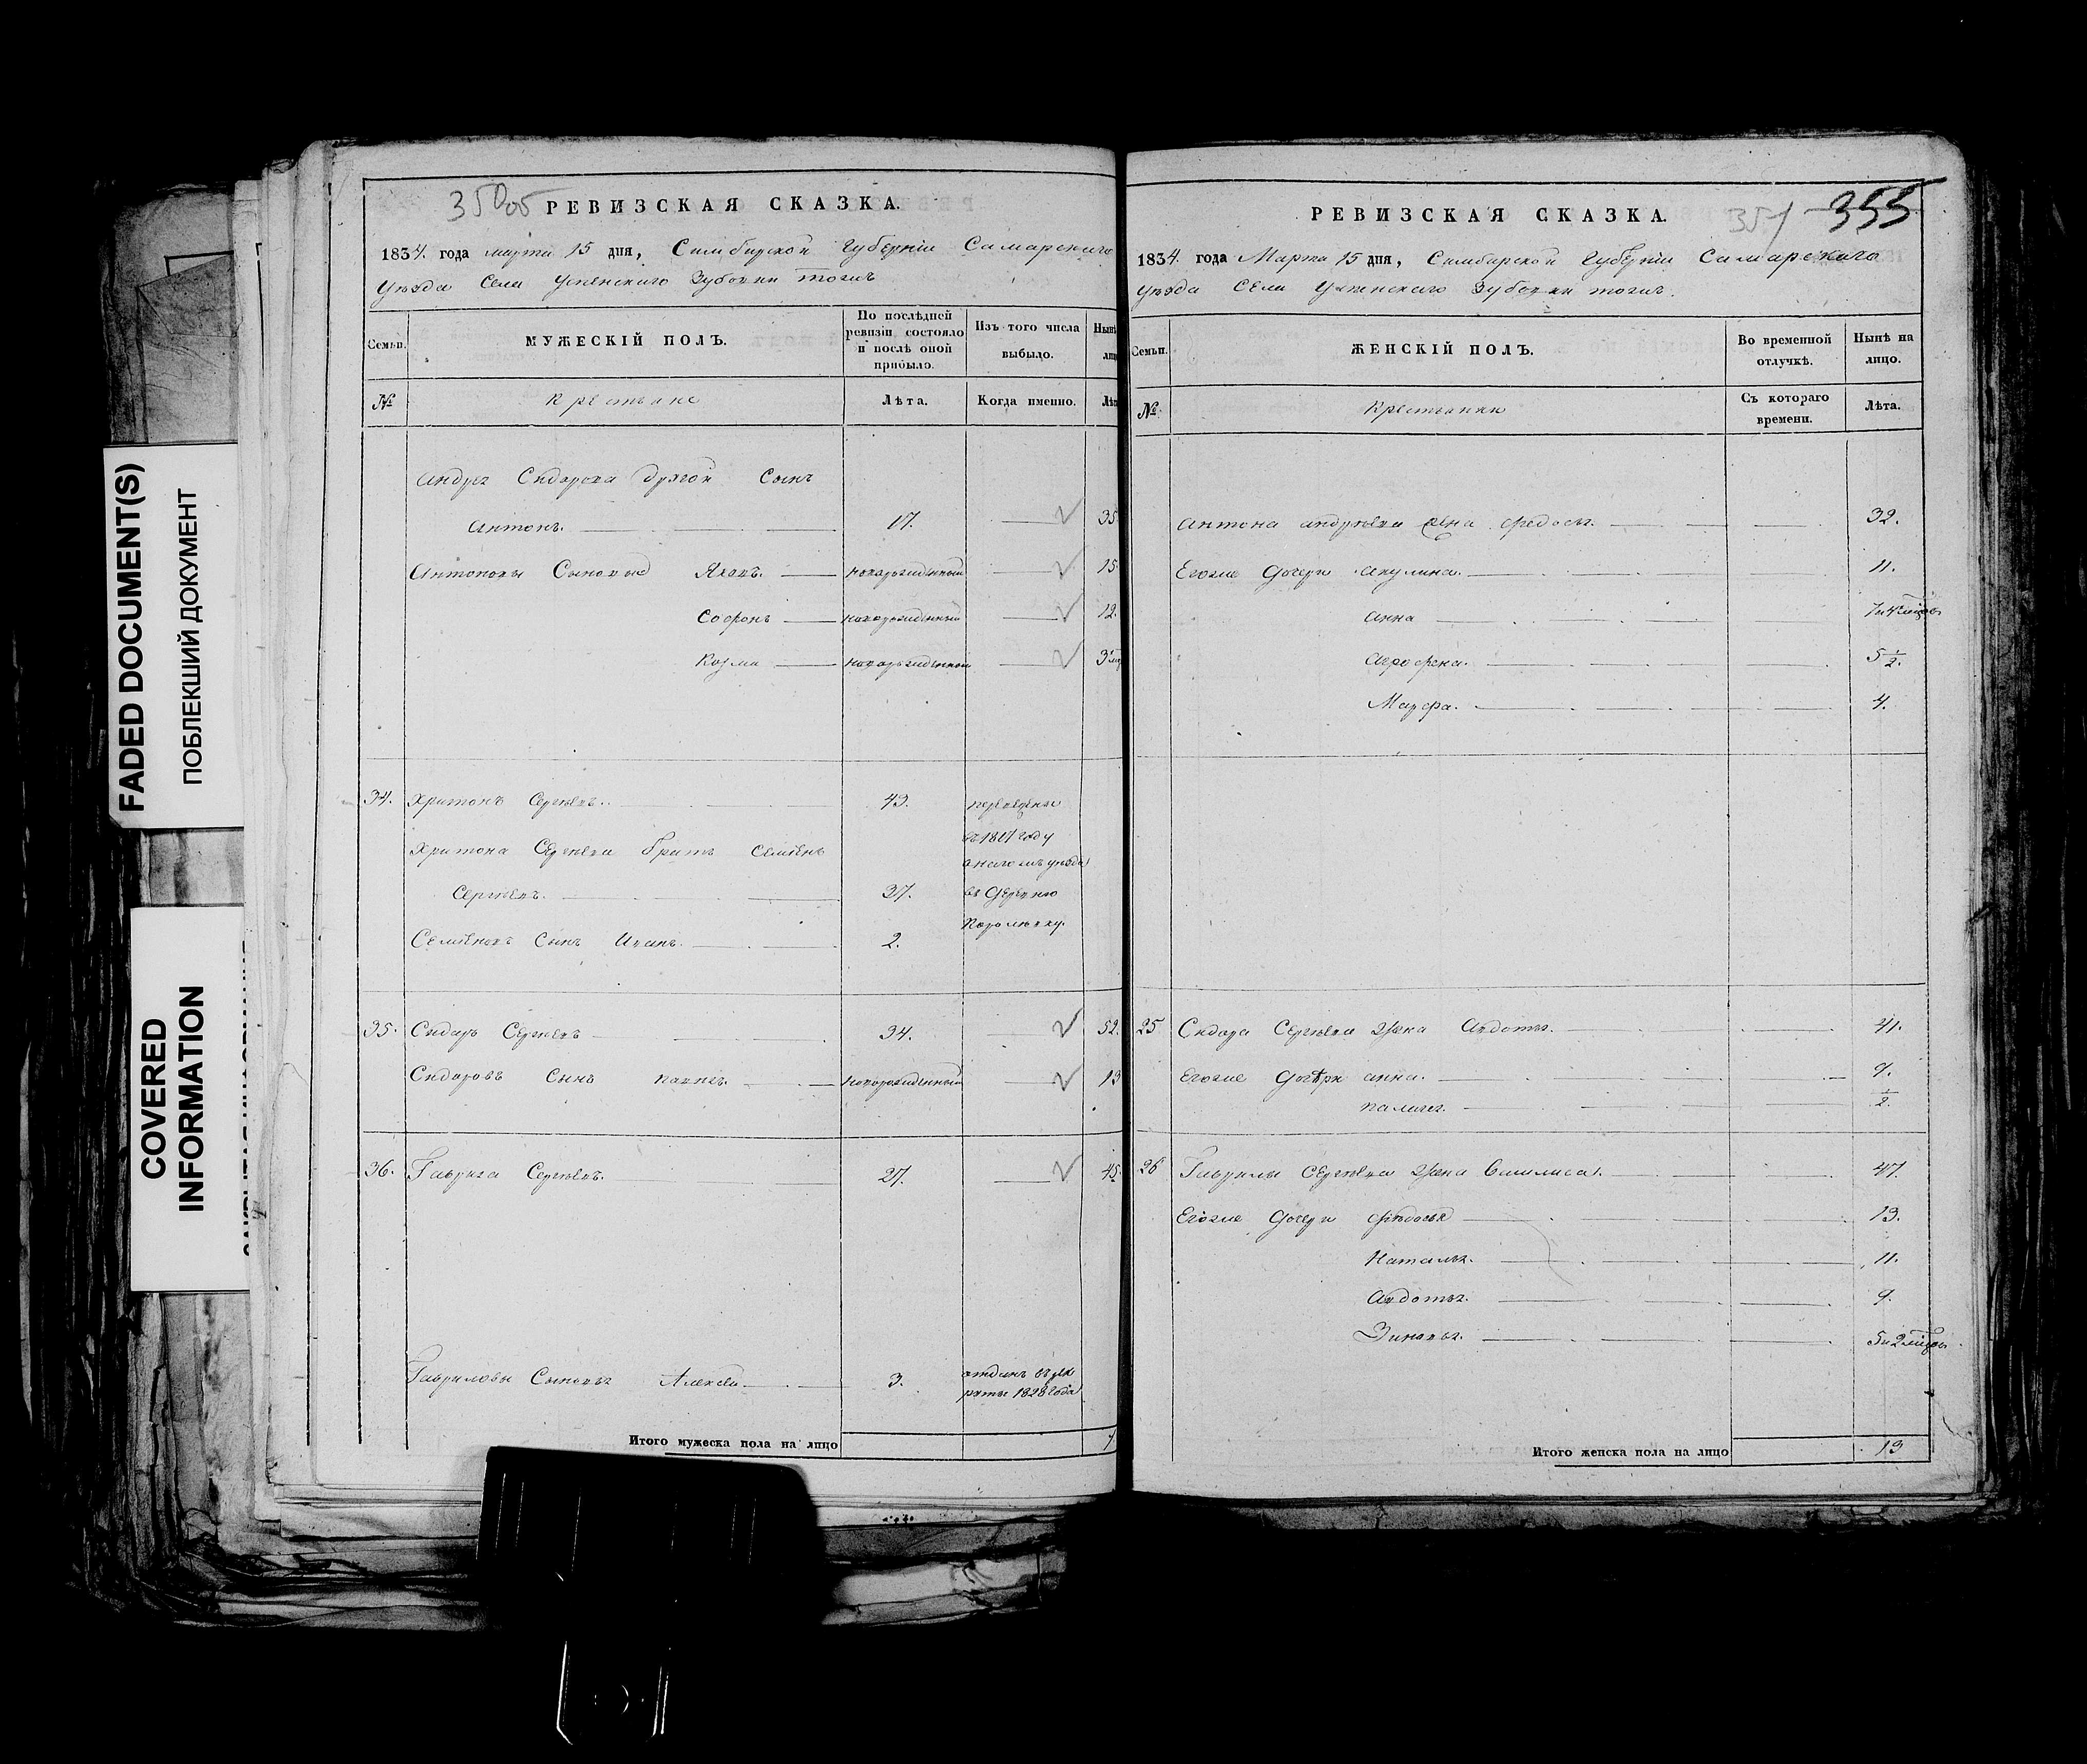 FADED DOCUMENT(S)
ПОБЛЕКШИЙ ДОКУМЕНТ
COVERED
INFORMATION
РЕВИЗСКАЯ СКАЗКА.
1834. года марта 15 дня, Симбирской Губерніи Самарскаго
уѣзда Села Успенскаго Зубовки тожъ
Семьи.
МУЖЕСКІЙ ПОЛЪ.
По послѣдней
ревизіи состояло
и послѣ оной
прибыло.
Изъ того числа
выбыло.
№
Крестьяне
Лѣта.
Когда именно.
Сидорова другой Сынъ
Антонъ. 17. 35
Антоновы Сыновья новорожденный 15
Софронъ новорожденный 12.
Козма новорожденной
34. Сергѣевъ. 43. переведены
въ 1817 году
Сергѣева братъ Семіонъ
Сергѣевъ. 37. въ Деревню
Семіоновъ Сынъ Иванъ. 2.
35. Сидоръ Сергѣевъ 34. 52.
Сидоровъ Сынъ новорожденный 13
36. Гаврила Сергѣевъ. 27. 45.
Гавриловы Сыновья Алексей 3. отданъ въ рек
руты 1828 года
Итого мужеска пола на лицо 7
РЕВИЗСКАЯ СКАЗКА.
351 355
1834. года Марта 15 дня, Симбирской Губерніи Самарскаго
уѣзда Села Успенскаго Зубовки тожъ.
Семьи.
ЖЕНСКІЙ ПОЛЪ.
Во временной
отлучкѣ.
Нынѣ на
лицо.
№
Крестьянки
Съ котораго
времени.
Лѣта.
Антона Андреева жена Федосья. 32.
Егоже Дочери Акулина. 11.
Анна
Агрофена. 5 1/2.
Марфа. 4.
25 Сидора Сергѣева жена Авдотья. 41.
Егоже Дочери Анна.
Палагея. 1/2.
26 Гаврилы Сергѣева жена Василиса. 47.
Егоже Дочери Федосья 13.
Наталья. 11.
Авдотья. 9.
Зиновья.
Итого женска пола на лицо 13